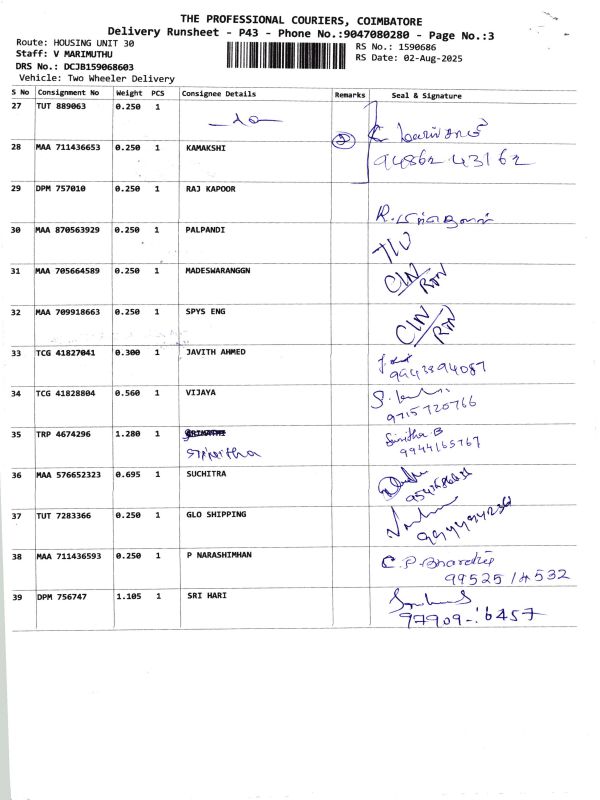 THE PROFESSIONAL COURIERS, COIMBATORE
Delivery Runsheet - P43 - Phone No.:9047080280 - Page No.:3
Route: HOUSING UNIT 30
RS No.: 1590686
Staff: V MARIMUTHU
RS Date: 02-Aug-2025
DRS No.: DCJB159068603
Vehicle: Two Wheeler Delivery
S No Consignment No Weight PCS Consignee Details Remarks Seal & Signature
27 TUT 889063 0.250 1
28 MAA 711436653 0.250 1 KAMAKSHI 2 94862 43162
29 DPM 757010 0.250 1 RAJ KAPOOR
30 MAA 870563929 0.250 1 PALPANDI
31 MAA 705664589 0.250 1 MADESWARANGGN
32 MAA 709918663 0.250 1 SPYS ENG
33 TCG 41827041 0.300 1 JAVITH AHMED
34 TCG 41828804 0.560 1 VIJAYA 9715720766
35 TRP 4674296 1.280 1 Srinitha B
9944165767
36 MAA 576652323 0.695 1 SUCHITRA
37 TUT 7283366 0.250 1 GLO SHIPPING
38 MAA 711436593 0.250 1 P NARASHIMHAN C.P. Bharathi
99525 14532
39 DPM 756747 1.105 1 SRI HARI